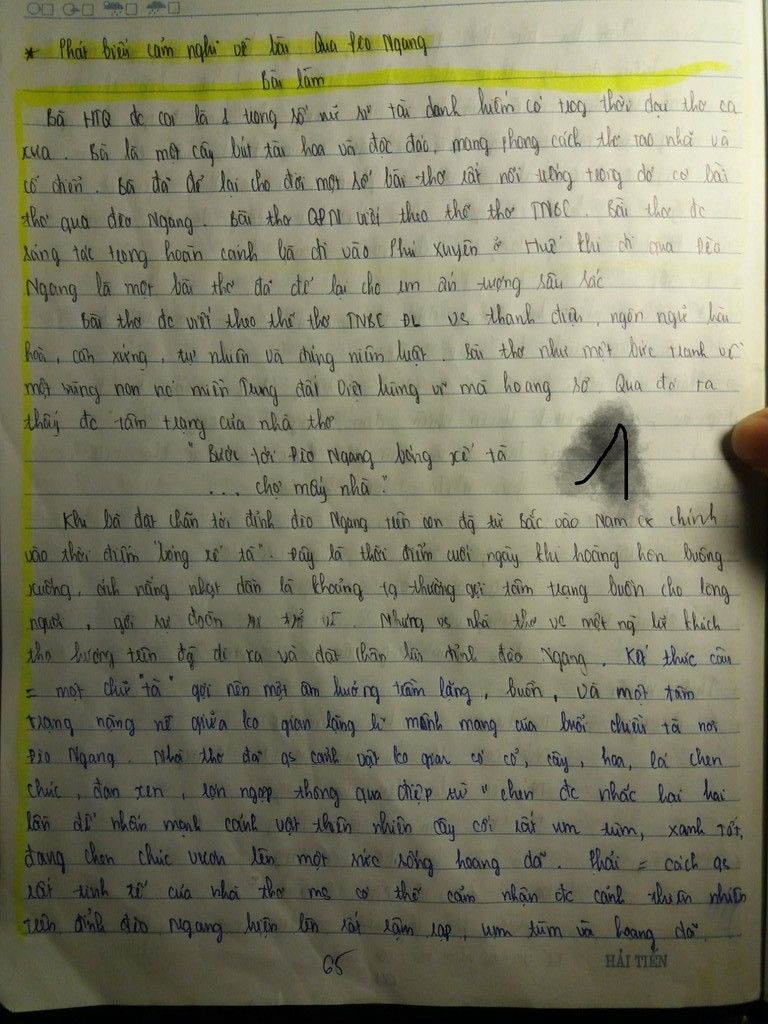 * Phát biểu cảm nghĩ về bài Qua Đèo Ngang
Bài làm
Bà HTQ đc coi là 1 trong số nữ sĩ tài danh hiếm có trog thời đại thơ ca
xưa. Bà là một cây bút tài hoa và độc đáo, mang phong cách thơ tao nhã và
cổ điển. Bà đã để lại cho đời một số bài thơ rất nổi tiếng trong đó có bài
thơ qua đèo Ngang. Bài thơ QĐN viết theo thể thơ TNBC. Bài thơ đc
sáng tác trong hoàn cảnh bà đi vào Phú Xuyên ở Huế khi đi qua Đèo
Ngang là một bài thơ đã để lại cho em ấn tượng sâu sắc
Bài thơ đc viết theo thể thơ TNBC ĐL vs thanh điệu, ngôn ngữ hài
hoà, cân xứng, tự nhiên và đúng niêm luật. Bài thơ như một bức tranh về
một vùng non nc miền Trung đất Việt hùng vĩ mà hoang sơ. Qua đó ta
thấy đc tâm trạng của nhà thơ
"Bước tới Đèo Ngang bóng xế tà
... chợ mấy nhà."
1
Khi bà đặt chân tới đỉnh đèo Ngang trên con đg từ Bắc vào Nam chính
vào thời điểm "bóng xế tà". Đây là thời điểm cuối ngày khi hoàng hôn buông
xuống, ánh nắng nhạt dần là khoảng tg thường gợi tâm trạng buồn cho lòng
người, gợi sự đoàn tụ trở về. Nhưng vs nhà thơ một ng lữ khách
tha hương trên đg đi ra và đặt chân lên đỉnh đèo Ngang. Kết thúc câu
= một chữ "tà" gợi nên một âm hưởng trầm lặng, buồn, và một tâm
trạng nặng nề giữa ko gian lặng lẽ mênh mang của buổi chiều tà nơi
Đèo Ngang. Nhà thơ đã qs cảnh vật ko gian có cỏ, cây, hoa, lá chen
chúc, đan xen, rợn ngợp thông qua điệp từ "chen đc nhắc hai hai
lần để nhấn mạnh cảnh vật thiên nhiên cây cối rất um tùm, xanh tốt,
đang chen chúc vươn lên một sức sống hoang dã. Phải = cách qs
rất tinh tế của nhà thơ ms có thể cảm nhận đc cảnh thiên nhiên
trên đỉnh đèo Ngang hiện lên rất rậm rạp, um tùm và hoang dã.
65
HẢI TIẾN